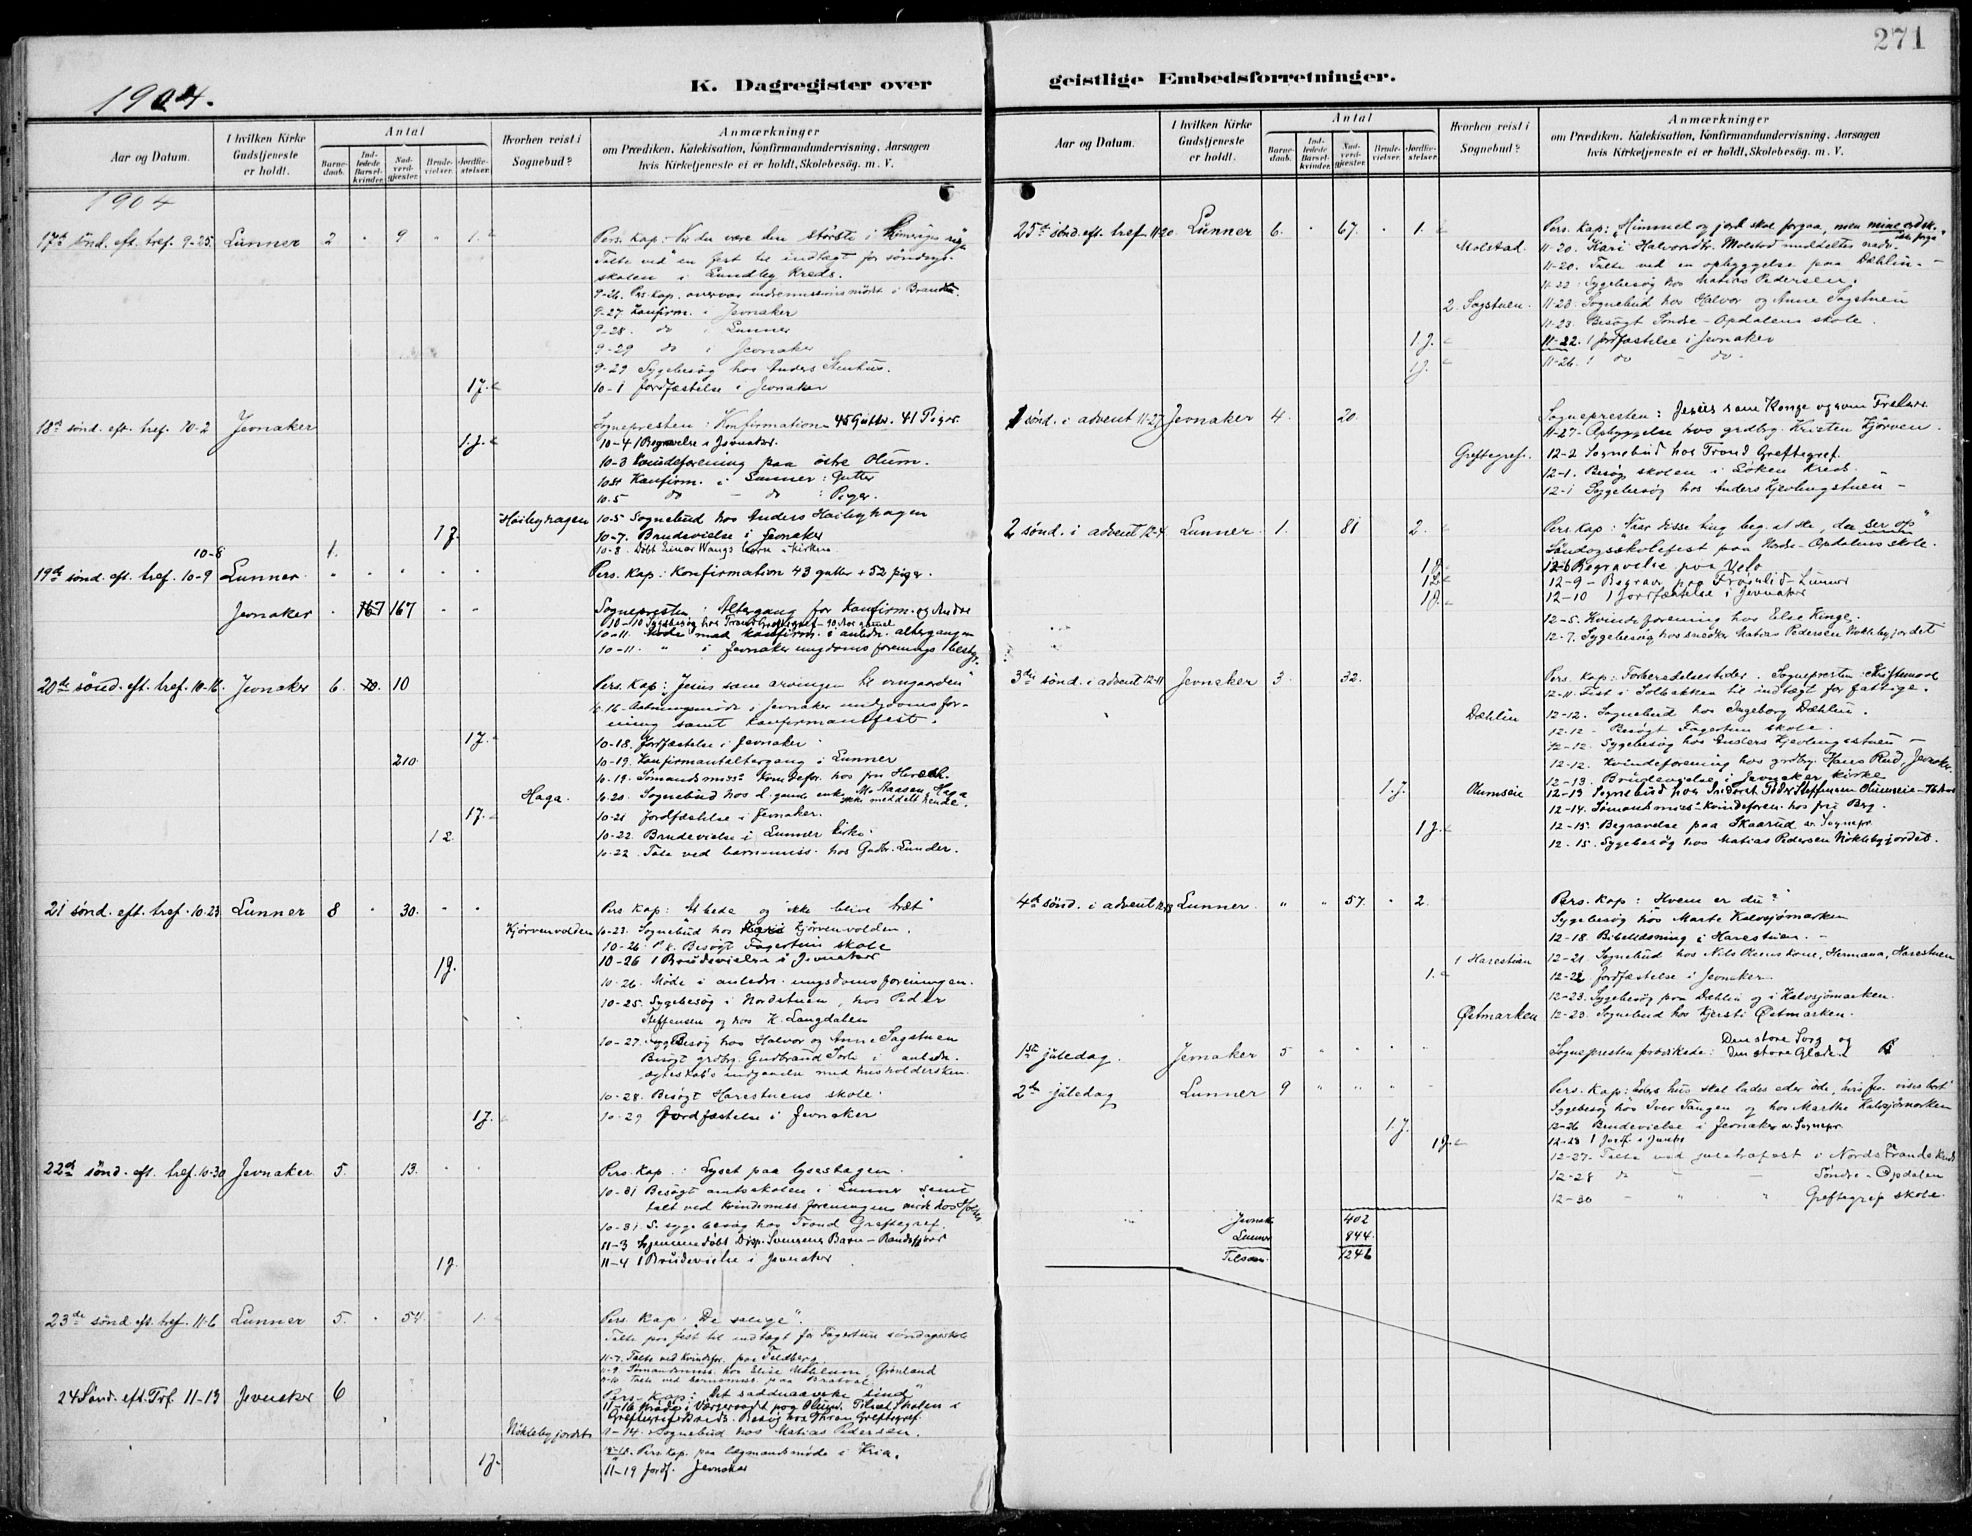 271
1904.
K. Dagregister over geistlige Embedsforretninger.
Aar og Datum.
I hvilken Kirke Gudstjeneste er holdt.
Antal
Barne-daab.
Ind-ledede Barsel-kvinder.
Nad-verd-gjester.
Brude-vielser.
Jordfæ-stelser.
Hvorhen reist i Sognebud?
Anmærkninger
om Prædiken, Katekisation, Konfirmandundervisning, Aarsagen
hvis Kirketjeneste ei er holdt, Skolebesøg. m. V.
1904
17de sønd. eft. tref. 9-25. Lunner 2 " 9 " 1. Pers. Kap: Vil du være den største i Himmeriges rige
Talte ved en fest til indtægt for søndags-
skolen i Lundby Kreds.
9-26. Pers. Kap. overvar indremissionsmødet i Brandbu.
9-27 Konfirm. i Jevnaker
9-28. do i Lunner
9-29 do i Jevnaker
9-29 Sygebesøg hos Anders Stenhus.
1 J. 10-1 Jordfæstelse i Jevnaker
18de sønd. eft. tref. 10-2 Jevnaker Sognepresten: Konfirmation 45 Gutter. 41 Piger.
1 J. 10-4 1 Begravelse i Jevnaker.
10-3 Kvindeforening paa østre Olum.
10-4 Konfirm. i Lunner: Gutter
10-5 do - do : Piger.
Høibyhagen 10-5 Sognebud hos Anders Høibyhagen
1 J. 10-7. Brudevielse i Jevnaker
10-8 1. 10-8. Døbt Einar Wangs barn i kirken
19de sønd. eft. tref. 10-9 Lunner " " " " " Pers. Kap: Konfirmation 43 gutter + 52 piger.
Jevnaker " 167 167 " " Sognepresten: Altergang for Konfirm. og Andre
10-10 Sygebesøg hos Trond Greftegref - 90 Aar gammel
10-11. Møde med konfirm. i anledn. altergangen
10-11. " i Jevnaker ungdomsforenings bestyr.
20de sønd. eft. tref. 10-16. Jevnaker 6. 10. 10 Pers. Kap: "Jesus som arvingen til vingaarden"
10-16. Aabningsmøde i Jevnaker ungdomsfor-
ening samt konfirmantfest.
1 J. 10-18. Jordfæstelse i Jevnaker
210. 10-19. Konfirmantaltergang i Lunner
10-19. Sømandsmiss. Kvindefor. hos fru
Haga. 10-20. Sognebud hos d. gamle enke Mo Aassen Haga
ikke meddelt hende.
1 J. 10-21 Jordfæstelse i Jevnaker.
1 2. 10-22. Brudevielse i Lunner kirke.
10-22. Tale ved barnemiss. hos Gudbr. Lunder.
21 sønd. eft. tref. 10-23 Lunner 8 " 30. " " Pers. Kap: At bede og ikke blive træt"
Kjørvenvolden 10-23. Sognebud hos Kjørvenvolden.
10-26. P. K. Besøgt Fagertun skole
1 J. 10-26 1 Brudevielse i Jevnaker
10-26. Møde i anledn. ungdomsforeningen.
10-25. Sygebesøg i Nordstuen, hos Peder
Steffensen og hos K. Langdalen
10-27. Sygebesøg hos Halvor og Anne Sagstuen
Besøgt grdbrg. Gudbrand Sorte i anledn.
ægteskab's indgaaelse med husholdersken.
10-28. Besøgt Harestuens skole.
1 J. 10-29 Jordfæstelse i Jevnaker
22de sønd. eft. tref. 10-30 Jevnaker. 5. 13. Pers. Kap.: Lyset paa lysestagen.
10-31 Besøgt amtsskolen i Lunner samt
talt ved Kvindemiss. foreningens møde hos
10-31. S. sygebesøg hos Trond Greftegref.
11-3 Hjemmedøbt Disp. Svensens Barn - Randsfjord
1 J. 11-4 1 Brudevielse i Jevnaker
23de sønd. eft. tref. 11-6 Lunner 5. " 54. 1. Pers. Kap: "De salige".
Talte paa fest til indtægt for Fagertun søndagsskole
11-7. Talte ved Kvindefor. paa Feldberg
11-9. Sømandsmiss. hos Elise Mohlum, Grønland
11-10 Talte ved barnemiss. paa Bratval
24 Sønd. eft. Trf. 11-13 Jevnaker 6 Pers. Kap: "Det saddnaaueke sind"
11-16 Møde i Værgeraadet paa Olum. Tilset Skolen i
Greftegrefs Kreds. Besøg hos Thron Greftegref.
Nøklebyjordet 11-14. Sognebud hos Matias Pedersen.
11-18. Pers. Kap. paa lægmandsmøde i Kria.
1 J. 11-19 Jordf. Jevnaker
Aar og Datum.
I hvilken Kirke Gudstjeneste er holdt.
Antal
Barne-daab.
Ind-ledede Barsel-kvinder.
Nad-verd-gjester.
Brude-vielser.
Jordfæ-stelser.
Hvorhen reist i Sognebud?
Anmærkninger
om Prædiken, Katekisation, Konfirmandundervisning, Aarsagen
hvis Kirketjeneste ei er holdt, Skolebesøg. m. V.
25de sønd. eft. tref. 11-20. Lunner 6. " 67. " 1. Pers. Kap: Himmel og jord skal forgaa, men mine ord sk. ikke forgaa"
Molstad. 11-20. Kari Halvordtr. Molstad meddeltes nadv.
11-20. Talte ved en opbyggelse paa Dæhlin.
11-22. Sygebesøg hos Matias Pedersen.
2. Sagstuen. 11-23. Sognebud hos Halvor og Anne Sagstuen
11-23. Besøgt Søndre-Opdalens skole.
1 J. 11-22. 1 Jordfæstelse i Jevnaker
1 J. 11-26. 1 do - do -
1 sønd. i advent 11-27 Jevnaker 4. 20. Sognepresten: Jesus som Konge og som Frelser.
11-27 - Opbyggelse hos grdbrg. Kristen Kjørven.
Greftegref. 12-2 Sognebud hos Trond Greftegref.
12-1. Besøg skolen i Løken Kreds.
12-1 Sygebesøg hos Anders Kjevlingstuen -
2 sønd. i advent 12-4 Lunner. 1. 81 2. Pers. Kap: "Naar disse ting beg. at ske, da ser op"
Søndagsskolefest paa Nordre-Opdalens skole.
1 J. 12-6 Begravelse paa Velo
1 L 12-9 - Begrav. paa Frøislid - Lunner
1 J. 12-10 1 Jordfæstelse i Jevnaker
12-5. Kvindeforening hos Else Kinge.
12-7. Sygebesøg hos snedker Matias Pedersen Nøklebyjordet
3die sønd. i advent 12-11 Jevnaker 3. 32. Pers. Kap: Forberedelsestider. Sognepresten Skriftemaal
12-11. Fest i Solbakken til indtægt for fattige.
Dæhlin 12-12. Sognebud hos Ingeborg Dæhlin.
12-12 - Besøgt Fagertun skole.
12-12. Sygebesøg hos Anders Kjevlingsstuen -
12-12. Kvindeforening hos grdbrg. Hans Rud, Jevnaker.
1. J. 12-13. Brudevielse i Jevnaker kirke
Olumseie 12-13 Sognebud hos Inderst Peder Steffensen Olumseie - 76 Aar
12-14. Sømandsmiss. Kvindeforen. hos fru Berg.
1 J. 12-15. Begravelse paa Skaarud av Sognepr.
12-15. Sygebesøg hos Matias Pedersen Nøklebyjordet.
4de sønd. i advent 12-18 Lunner. " " 57. " 2. Pers. Kap: "Hvem er du?"
Sygebesøg hos Marte Kalvsjømarken
12-18. Bibellæsning i Harestuen. -
1 Harestuen 12-21. Sognebud hos Nils Olsens kone, Hermana, Harestuen
1. 12-22 Jordfæstelse i Jevnaker
12-23. Sygebesøg paa Dæhlin og i Kalvsjømarken.
Østmarken 12-23. Sognebud hos Kjersti Østmarken.
1ste juledag. Jevnaker 5 " " " " Sognepresten prædikede: Den store Sorg og
Den store Glæde
2de juledag Lunner 9 " " " " Pers. Kap: Eders hus skal lades eder øde, hvis Jes. vises bort
Sygebesøg hos Iver Tangen og hos Marthe Kalvsjømarken
1 J. 12-26 Brudevielse i Jevnaker av Sognepr.
1 J. 12-28 1 Jordf. i Jevnk.
12-27. Talte ved juletræfest i Nordstrands Kreds
12-28 do - - Søndre-Opdalen
12-30 - " " Greftegref skole.
Jevnak. 402
Lunner 844.
Tilsam. 1246